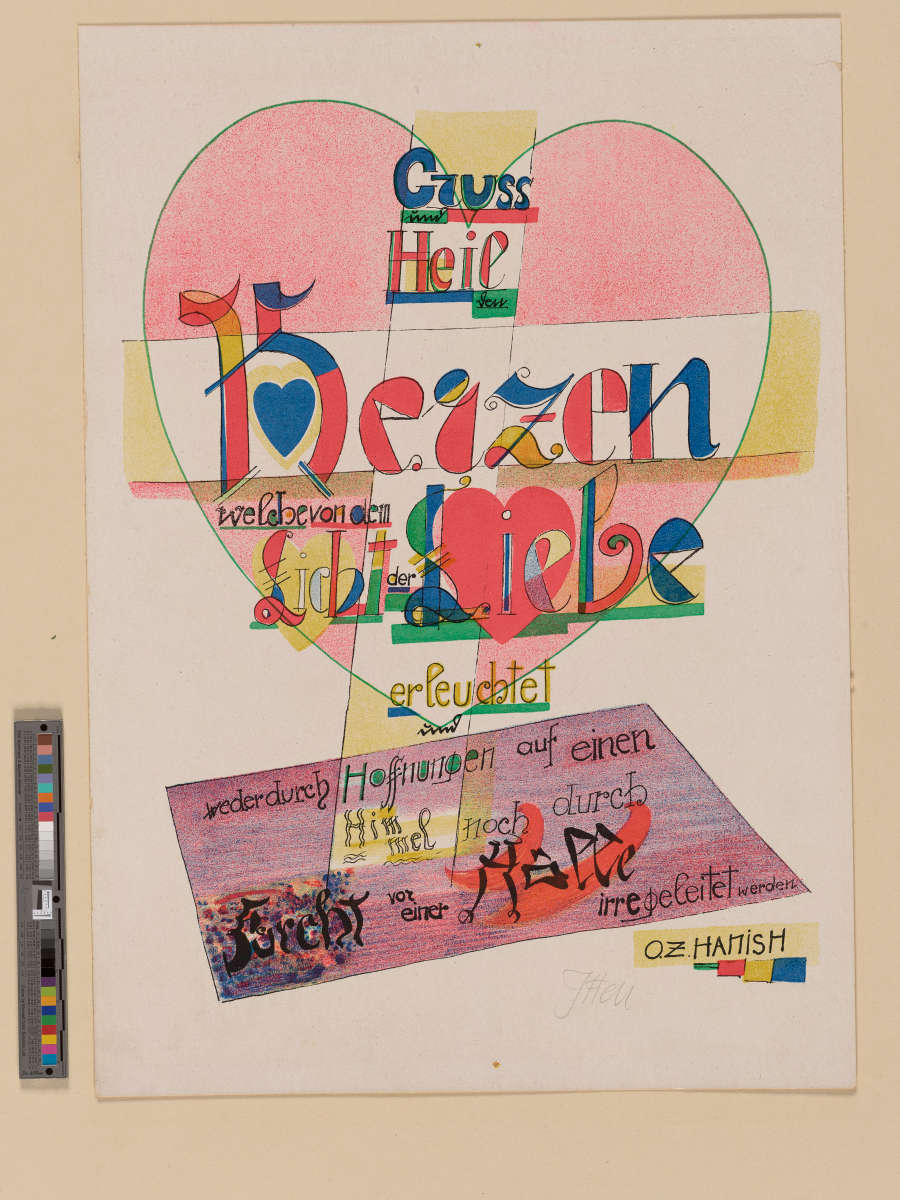 Gruss
und
Heil
den
Herzen
welche von dem
Licht der Liebe
erleuchtet
und
weder durch Hoffnungen auf einen
Himmel noch durch
Furcht vor einer Hölle irregeleitet werden.
O.Z. HANISH
JItten